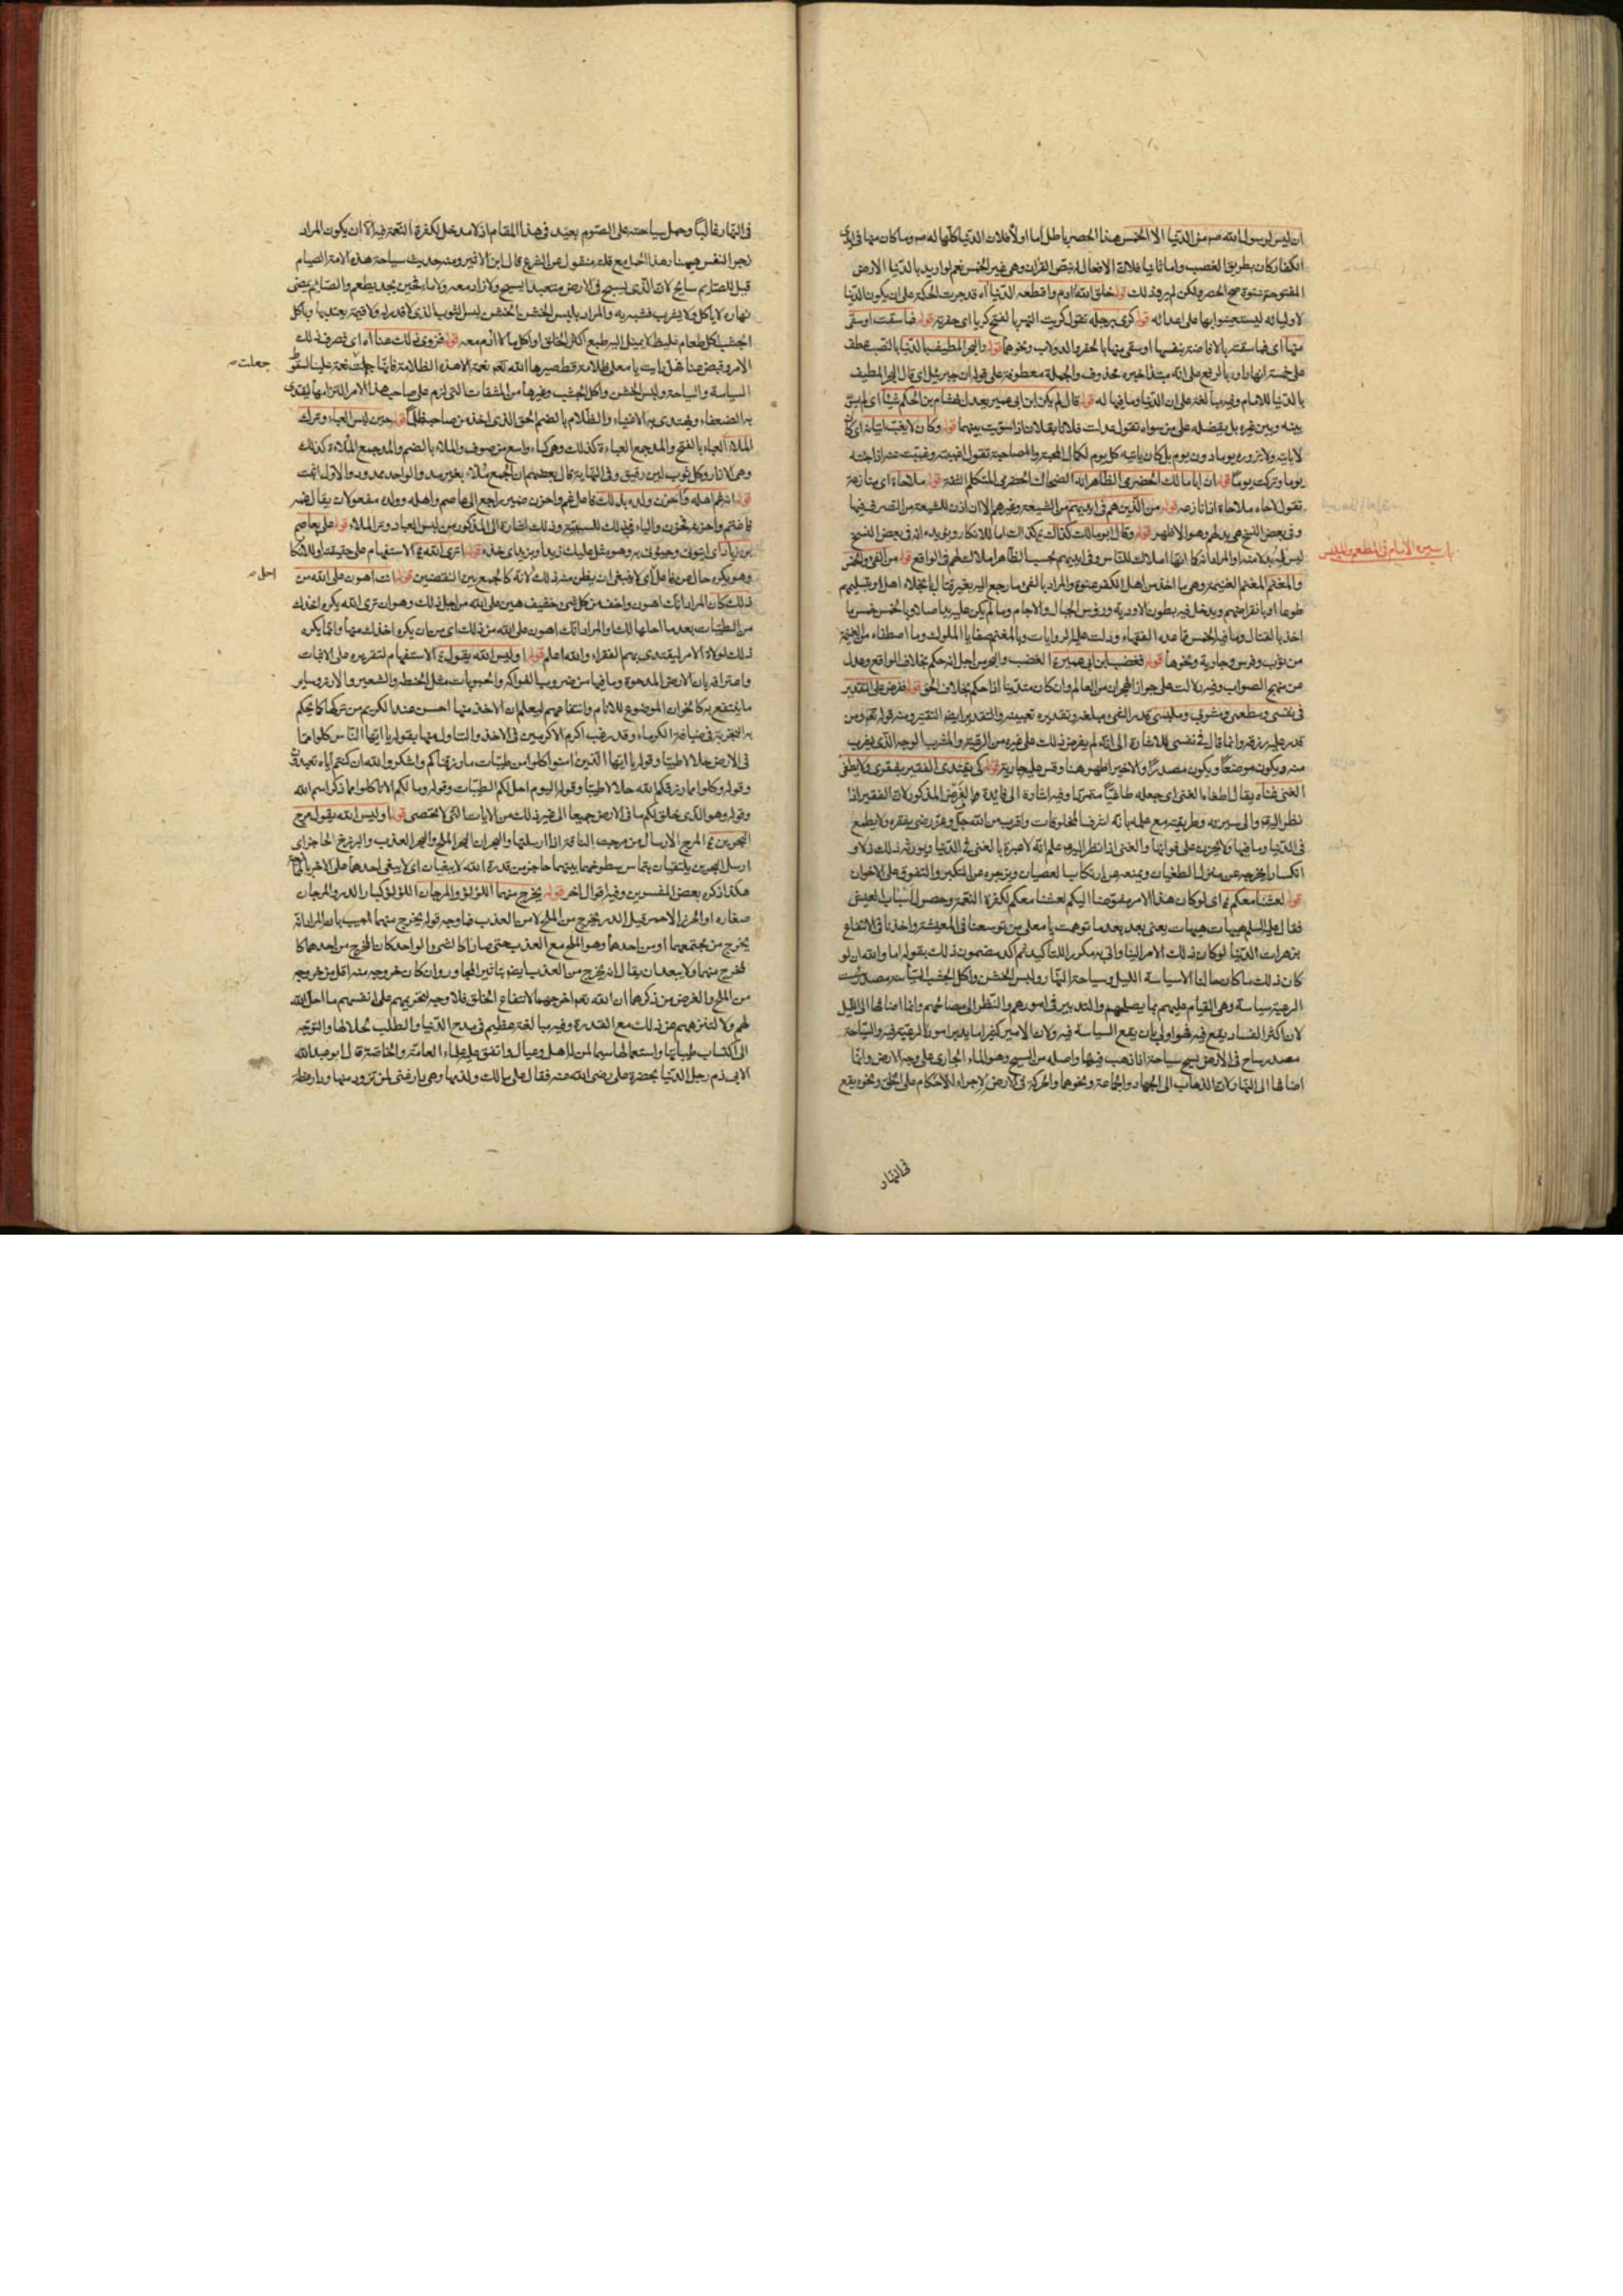 ان ليس لرسول الله صم من الدنيا الا الخمس هذا الحصر باطل اما اولا فلان الدنيا كلها له صم وما كان منها فى ايدى
الكفار كان بطريق الغصب واما ثانيا فلان الانفال له بنص القران وهى غير الخمس نعم لو اريد بالدنيا الارض
المفتوحة عنوة صح الحصر ولكن لم يرد ذلك قوله خلق الله آدم واقطعه الدنيا آه قد جرت الحكمة على ان يكون الدنيا
لاوليائه ليستعينوا بها على اعدائه قوله كرى برجله تقول كريت النهر بالفتح كريا اى حفرته قوله فما سقت او سقى
منها اى فما سقته بالافاضة بنفسها او سقى منها بالحفر والدولاب ونحوهما قوله والبحر المطيف بالدنيا بالنصب عطف
على خمسة انهار او بالرفع على انه مبتدا خبره محذوف والجملة معطوفة على قوله ان جبرئيل اى قال البحر المطيف
بالدنيا للامام وفيه مبالغة على ان الدنيا وما فيها له قوله قال لم يكن ابن ابى عمير يعدل بهشام بن الحكم شيئا اى لم يسو
بينه وبين غيره بل يفضله على من سواه تقول عدلت فلانا بفلان اذا سويت بينهما قوله وكان لا يغب اتيانه اى كان
لا ياتيه ولا يزوره يوما دون يوم بل كان ياتيه كل يوم لكمال المحبة والمصاحبة تقول اغببته وغببت عنه اذا جئته
يوما وتركت يوما قوله ان ابا مالك الحضرمى الظاهر انه الضحاك الحضرمى المتكلم الثقة قوله ملاحاة اى منازعة
تقول لاحاه ملاحاة اذا نازعه قوله من الذين هم فى ايديهم من الشيعة وغيرهم الا ان اذن للشيعة من التصرف فيها
وفى بعض النسخ هى بدل هم وهو الاظهر قوله وقال ابو مالك كذلك
ليس له بدلا منه او المراد انه كما انها املاك للناس وفى ايديهم بحسب الظاهر املاك لهم فى الواقع قوله من الفىء والخمس
والمغنم المغنم الغنيمة وهى ما اخذ من اهل الكفر عنوة والمراد بالفىء ما رجع اليه بغير قتال بانجلاء اهلها او بتسليمهم
طوعا او بانقراضهم ويدخل فيه بطون الاودية ورؤس الجبال والاجام وما لم يكن عليه يد اصلا وبالخمس خمس ما
اخذ بالقتال وما فيه الخمس مما عده الفقهاء ودلت عليه الروايات وبالمغنم صفايا الملوك وما اصطفاه من الغنيمة
من ثوب وفرس وجارية ونحوها قوله فغضب ابن ابى عمير آه الغضب والهجر من اجل انه حكم بخلاف الواقع وعدل
عن منهج الصواب وفيه دلالة على جواز هجران من العالم وان كان متدينا اذا حكم بخلاف الحق قوله ففرض على التقدير
فى نفسى ومطعمى ومشربى وملبسى قدر الشىء مبلغه وتقديره تعيينه والتقدير ايضا التقتير ومنه قوله تعم ومن
قدر عليه رزقه وانما قال فى نفسى للاشارة الى انه لم يفرض ذلك على غيره من الرعية والمشرب الوجه الذى يشرب
منه ويكون موضعا ويكون مصدرا والاخير اظهر هنا وقس عليه جاريته قوله كى يقتدى الفقير بفقرى ولا يطغى
الغنى غناه يقال اطغاه الغنى اى جعله طاغيا متمردا وفيه اشارة الى فايدة هذا الفرض المذكور لان الفقير اذا
نظر اليه والى سيرته وطريقته مع علمه بانه اشرف المخلوقات واقرب من الله جل وعز رضى بفقره ولا يطمع
فى الدنيا وما فيها ولا يحزن على فواتها والغنى اذا نظر اليه علم انه لا عبرة بالغنى فى الدنيا ويورثه ذلك ذلا و
انكسارا يخرجه عن منزل الطغيان ويمنعه عن ارتكاب العصيان ويزجره عن التكبر والتفوق على الاخوان
قوله لعشنا معكم آه اى لو كان هذا الامر مفوضا اليكم لعشنا معكم لكثرة النعمة وحصول اسباب العيش
فقال عليه السلم هيهات هيهات يعنى بعد بعد ما توهمت يا معلى من توسعنا فى المعيشة واخذنا فى الانتفاع
بزهرات الدنيا لو كان ذلك الامر الينا واتى به مكررا للتاكيد ثم اكد مضمون ذلك بقوله اما والله ان لو
كان ذلك ما كان حالنا الا سياسة الليل وسياحة النهار ولبس الخشن واكل الجشب السياسة مصدر سست
الرعية سياسة وهى القيام عليهم بما يصلحهم والتدبير فى امورهم والنظر الى مصالحهم وانما اضافها الى الليل
لان اكثر الفساد يقع فيه فهو اولى بان يقع السياسة فيه ولان الامير كثيرا ما يدبر امور الرعية فيه والسياحة
مصدر ساح فى الارض يسيح سياحة اذا ذهب فيها واصله من السيح وهو الماء الجارى على وجه الارض وانما
اضافها الى النهار لان الذهاب الى الجهاد والجماعة ونحوهما والحركة فى الارض لاجراء الاحكام على الخلق ونحوه يقع
فى النهار
فى النهار غالبا وحمل سياحته على الصوم بعيد فى هذا المقام اذ لا مدخل لكثرة النعمة فيه الا ان يكون المراد
زجر النفس هيهنا وهذا الحمل مع قلته منقول عن الشرع قال ابن الاثير ومنه حديث سياحة هذه الامة الصيام
قيل للصايم سايح لان الذى يسيح فى الارض متعبدا يسيح ولا زاد معه ولا ماء فحين يجد يطعم والصايم يمضى
نهاره لا ياكل ولا يشرب فشبه به والمراد بلبس الخشن الخشن لبس الثوب الذى لا قدر له ولا قيمة يعتد بها وباكل
الجشب اكل طعام غليظ لا يميل اليه طبع اكثر الخلق او اكل ما لا ادم معه قوله فزوى ذلك عنا آه اى فصرف ذلك
الامر وقبض عنا فهل رايت يا معلى ظلامة قط صيرها الله تعم نعمة الا هذه الظلامة فانها جعلت نعمة علينا لسقوط
السياسة والسياحة ولبس الخشن واكل الجشب وغيرها من المشقات التى تلزم على صاحب هذا الامر التزامها ليقتدى
به الضعفاء ويهتدى به الاغنياء والظلام بالضم الحق الذى اخذه من صاحبه ظلما قوله حين لبس العباء وترك
الملاء العباء بالفتح والمد جمع العباءة كذلك وهى كساء واسع من صوف والملاء بالضم والمد جمع الملاءة كذلك
وهى الازار وكل ثوب لين رقيق وفى النهاية قال بعضهم ان الجمع ملأ بغير مد والواحد ممدود والاول اثبت
قوله انه غم اهله واحزن ولده بذلك فاعل غم واحزن ضمير راجع الى عاصم واهله وولده مفعولان يقال غمه
فاغتم واحزنه فحزن والباء فى بذلك للسببية وذلك اشارة الى المذكور من لبس العباء وترك الملاء قوله على بعاصم
بن زياد اى ايتونى وجيئونى به وهو مثل عليك زيدا وبزيد اى خذه قوله اترى الله آه الاستفهام على حقيقته او للانكار
وهو يكره حال عن فاعل
ذلك كان المراد انك اهون واخف من كل شىء خفيف هين على الله من اجل ذلك وهو ان ترى الله يكره اخذك
من الطيبات بعد ما احلها لك او المراد انك اهون على الله من ذلك اى من ان يكره اخذك منها وانما يكره
ذلك لولاة الامر ليقتدى بهم الفقراء والله اعلم قوله او ليس الله يقول آه الاستفهام لتقريره على الاثبات
واعترافه بان الارض المدحوة وما فيها من ضروب الفواكه والحبوبات مثل الحنطة والشعير والارز وساير
ما ينتفع به كالخوان الموضوع للانام وانتفاعهم ليعلم ان الاخذ منها احسن عند الكريم من تركها كما يحكم
به التجربة فى ضيافة الكرماء وقد رغب اكرم الاكرمين فى الاخذ والتناول منها بقوله يا ايها الناس كلوا مما
فى الارض حلالا طيبا وقوله يا ايها الذين امنوا كلوا من طيبات ما رزقناكم واشكروا لله ان كنتم اياه تعبدون
وقوله وكلوا مما رزقكم الله حلالا طيبا وقوله اليوم احل لكم الطيبات وقوله وما لكم الا تاكلوا مما ذكر اسم الله
وقوله وهو الذى خلق لكم ما فى الارض جميعا الى غير ذلك من الايات التى لا تحصى قوله او ليس الله يقول مرج
البحرين آه المرج الارسال من مرجت الناقة اذا ارسلتها والبحران البحر الملح والبحر العذب والبرزخ الحاجز اى
ارسل البحرين يلتقيان يتماس سطوحهما بينهما حاجز من قدرة الله لا يبغيان اى لا يبغى احدهما على الاخر بالممازجة
هكذا ذكره بعض المفسرين وفيه اقوال اخر قوله يخرج منهما اللؤلؤ والمرجان اللؤلؤ كبار الدر والمرجان
صغاره او الخرز الاحمر قيل الدر يخرج من الملح لا من العذب فما وجه قوله يخرج منهما اجيب بان المراد انه
يخرج من مجتمعهما او من احدهما وهو الملح مع العذب حتى صارا كالشىء الواحد كان المخرج من احدهما كا
لمخرج منهما ولا يبعد ان يقال انه يخرج من العذب ايضا بتاثير المجاور وان كان خروجه منه اقل من خروجه
من الملح والغرض من ذكرها ان الله تعم اخرجهما لانتفاع الخلق فلا وجه لتحريمهم على انفسهم ما احل الله
لهم ولا لتنزههم عن ذلك مع القدرة وفيه مبالغة عظيم فى مدح الدنيا والطلب لحلالها والتوجه
الى اكتساب طيباتها واستعمالها سيما لمن له اهل وعيال واتفق عليه علماء العامة والخاصة قال ابو عبد الله
الابى ذم رجل الدنيا بحضرة على رضى الله عنه فقال على ما لك ولذمها وهى دار غنى لمن تزود منها ودار عظة
جعلت
احل